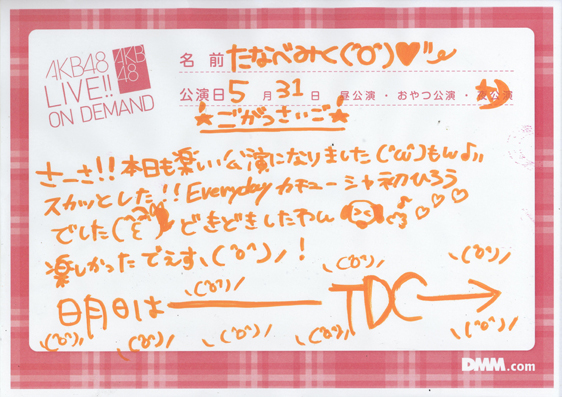 AKB48
LIVE!!
ON DEMAND
AKB
48
名前 たなべみく(^o^)♥
公演日 5月31日 昼公演・おやつ公演・夜公演
★ごがつさいご★
さーさ!!本日も楽しい公演になりました('ω')もw♪
スカッとした!!Everydayカチューシャ初ひろう
でした どきどきしたわん
楽しかったでえす\(^o^)/!
\(^o^)/
\(^o^)/
\(^o^)/
明日は――TDC→
\(^o^)/
\(^o^)/
\(^o^)/
\(^o^)/
\(^o^)/
DMM.com